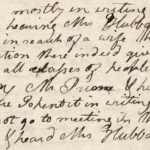 mostly in writing
hearing Mrs Hubba
in search of a wife
tion there indeed give
all classes of people
Mr
The forenoon in writing
not go to meeting in th
I heard Mrs Hubba